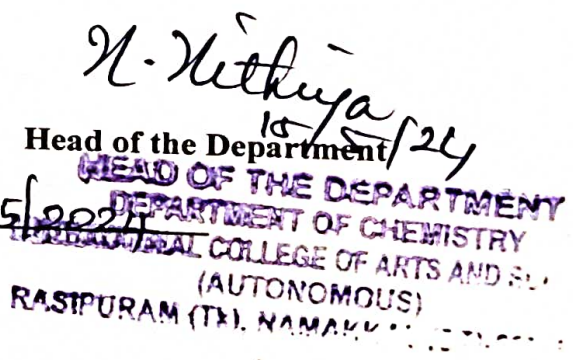 N. Nithiya
15/5/24
Head of the Department
HEAD OF THE DEPARTMENT
5/2024
DEPARTMENT OF CHEMISTRY
COLLEGE OF ARTS AND
(AUTONOMOUS)
RASIPURAM (TK).